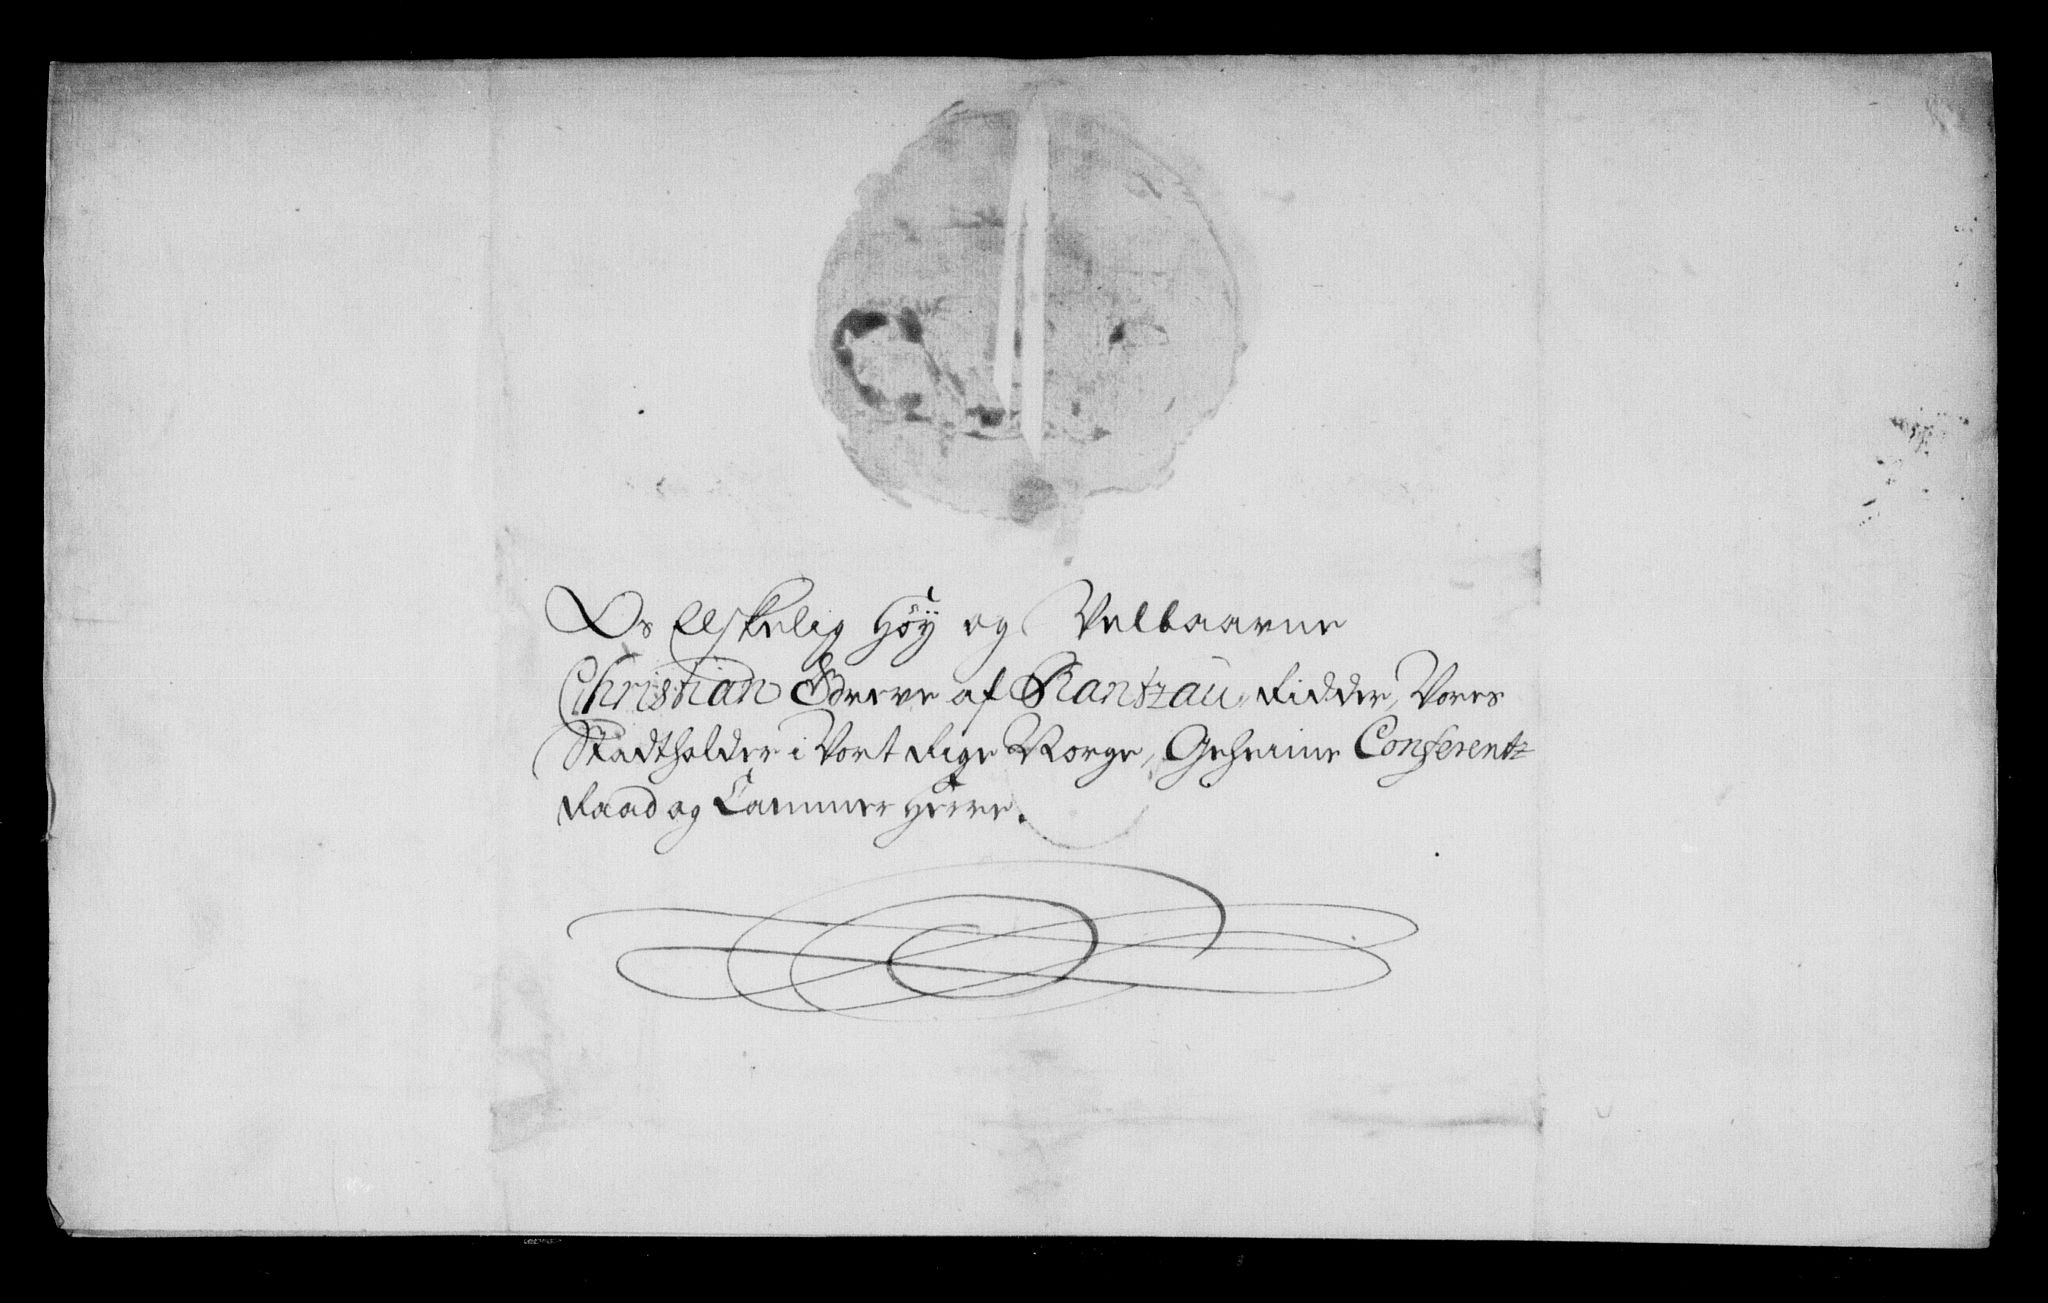 Os Elskelig Höÿ og Velbaarne
Christian Greve af Rantzau, Ridder, Vores
Stadtholder i Vort Rige Norge, Geheime Conferentz
Raad og Cammer Herre.